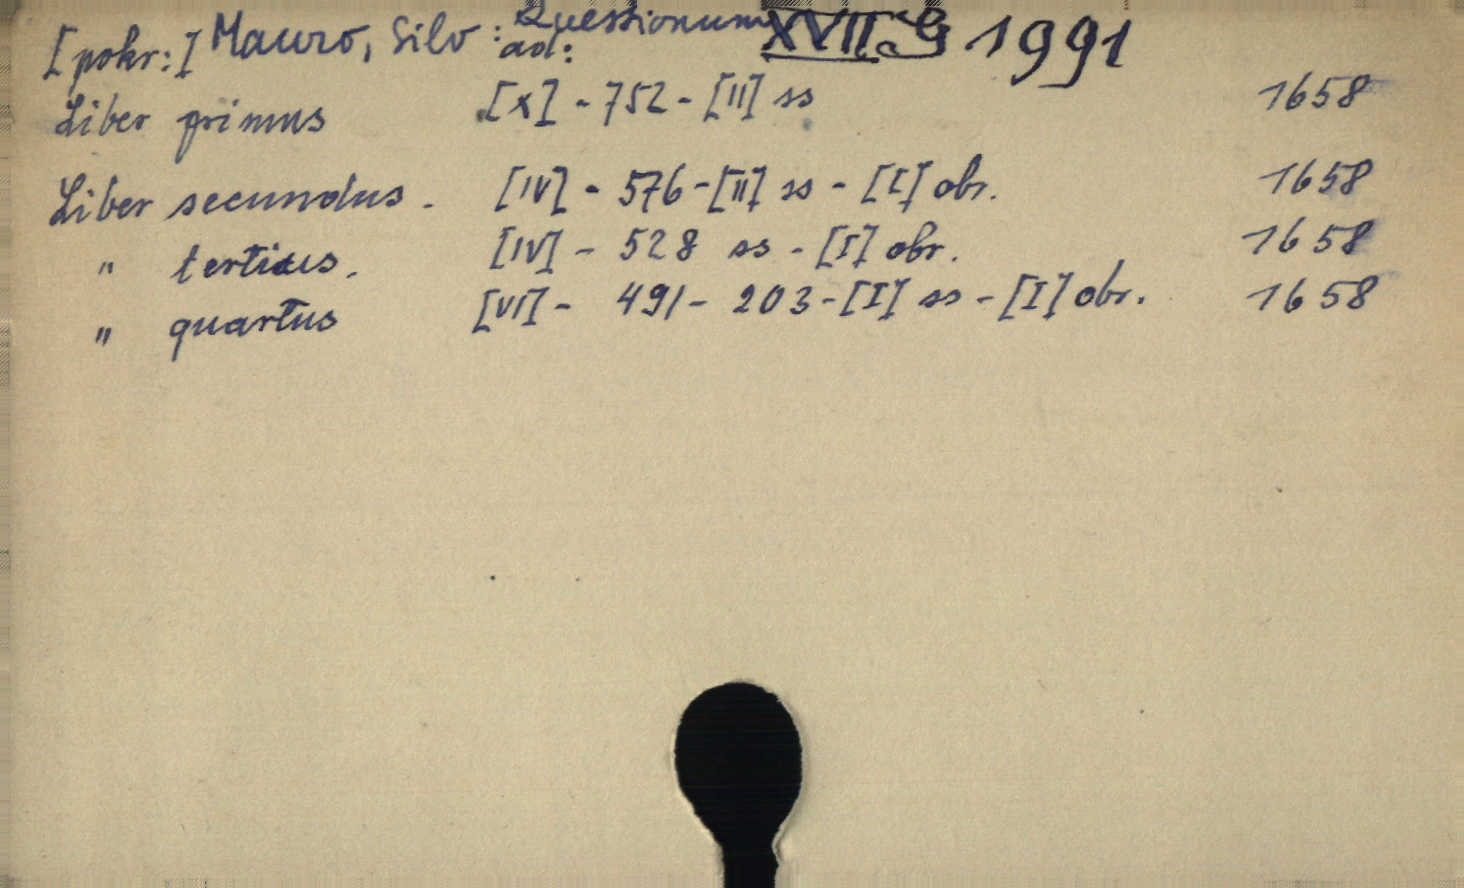 [pokr:] Mauro, Silv: Questionum XVII. G 1991
ad:
Liber primus [X] - 752 - [II] ss 1658
Liber secundus. [IV] - 576 - [II] ss - [I] obr. 1658
" tertius. [IV] - 528 ss - [I] obr. 1658
" quartus [VI] - 491 - 203 - [I] ss - [I] obr. 1658